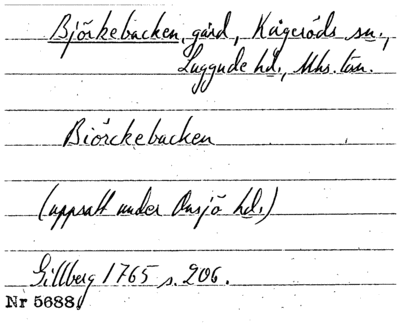 Björkebacken, gård, Kågeröds sn.,
Luggude hd., Mhs. län.
Biörckebacken
(uppsatt under Onsjö hd.)
Gillberg 1765 s. 206.
Nr 5688